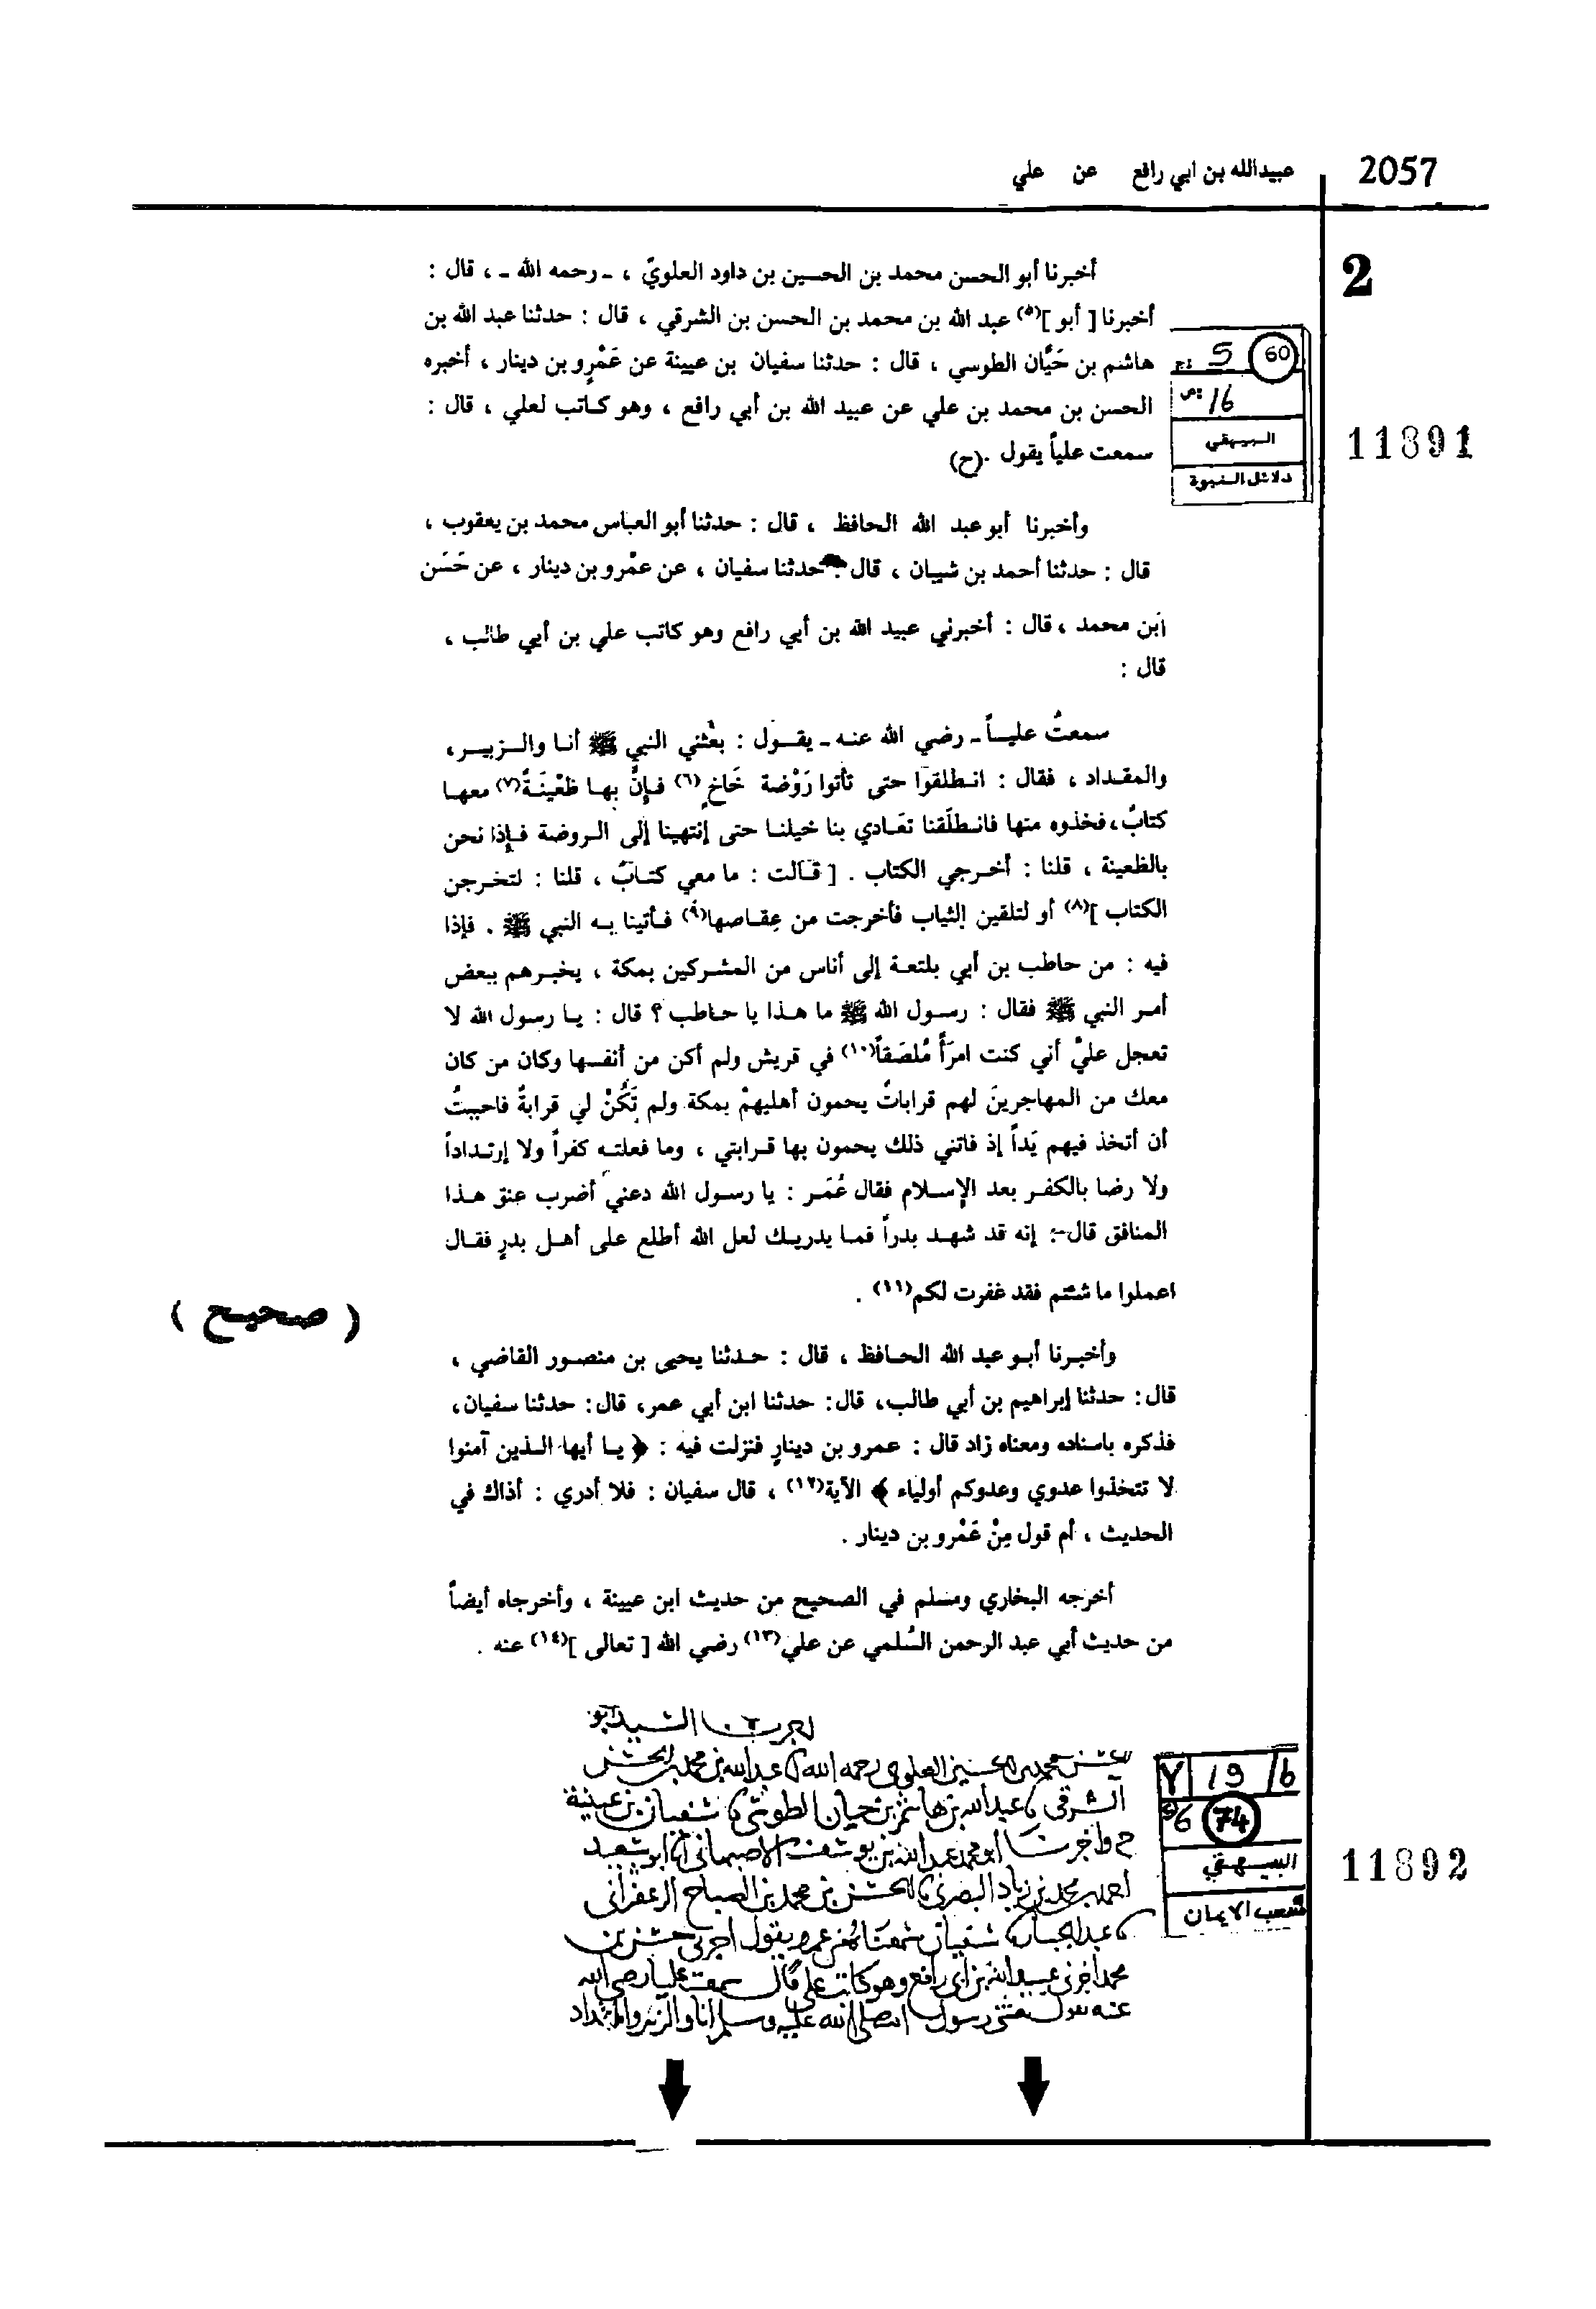 2057
عبيدالله بن ابي رافع عن علي
2
أخبرنا أبو الحسن محمد بن الحسين بن داود العلويّ ، ـ رحمه الله ـ ، قال :
أخبرنا [ أبو ](٥) عبد الله بن محمد بن الحسن بن الشرقي ، قال : حدثنا عبد الله بن
هاشم بن حَيَّان الطوسي ، قال : حدثنا سفيان بن عيينة عن عَمْرٍو بن دينار ، أخبره
الحسن بن محمد بن علي عن عبيد الله بن أبي رافع ، وهو كاتب لعلي ، قال :
سمعت علياً يقول . (ح)
60
ج: 5
ص: 16
البيهقي
دلائل النبوة
11891
وأخبرنا أبو عبد الله الحافظ ، قال : حدثنا أبو العباس محمد بن يعقوب ،
قال : حدثنا أحمد بن شيبان ، قال : حدثنا سفيان ، عن عمْرو بن دينار ، عن حَسَن
ابن محمد ، قال : أخبرني عبيد الله بن أبي رافع وهو كاتب علي بن أبي طالب ،
قال :
سمعتُ عليـاً ـ رضي الله عنه ـ يقـول : بعْثني النبي ﷺ أنا والـزبيـر،
والمقـداد ، فقال : انـطلقوا حتى تأتوا رَوْضة خَاخٍ(٦) فـإنَّ بهـا ظَعْيَنةً(٧) معهـا
كتابٌ، فخذوه منها فانـطلَقنا تعَـادي بنا خيلنـا حتى إنتهينا إلى الـروضة فـإذا نحن
بالظعينة ، قلنا : أخـرجي الكتاب . [ قـالت : ما معي كتـابٌ ، قلنا : لتخـرجن
الكتاب ](٨) أو لتلقين الثياب فأخرجت من عِقـاصها(٩) فـأتينا بـه النبي ﷺ . فإذا
فيه : من حاطب بن أبي بلتعـة إلى أناس من المشـركين بمكة ، يخبـرهم ببعض
أمـر النبي ﷺ فقال : رسـول الله ﷺ ما هـذا يا حـاطب ؟ قال : يـا رسول الله لا
تعجل عليّ أني كنت امرَأً مُلصَقاً(١٠) في قريش ولم أكن من أنفسها وكان من كان
معك من المهاجرينَ لهم قراباتٌ يحمون أهليهمْ بمكة ولم تَكُنْ لي قرابةٌ فاحببتُ
أن أتخذ فيهم يَداً إذ فاتني ذلك يحمون بها قـرابتي ، وما فعلتـه كفراً ولا إرتـداداً
ولا رضا بالكفـر بعد الإسـلام فقال عُمَـر : يا رسـول الله دعني أضرب عنق هـذا
المنافق قال : إنه قد شهـد بدراً فمـا يدريـك لعل الله أطلع على أهـل بدرٍ فقـال
اعملوا ما شئتم فقد غفرت لكم(١١) .
( صحيح )
وأخبـرنا أبـو عبد الله الحـافظ ، قال : حـدثنا يحيى بن منصـور القاضي ،
قال: حدثنا إبراهيم بن أبي طالب، قال: حدثنا ابن أبي عمر، قال: حدثنا سفيان،
فذكره باسناده ومعناه زاد قال : عمرو بن دينارٍ فنزلت فيه : ﴿ يـا أيها الـذين آمنوا
لا تتخذوا عدوي وعدوكم أولياء ﴾ الآية(١٢) ، قال سفيان : فلا أدري : أذاك في
الحديث ، أم قول مِنْ عَمْرو بن دينار .
أخرجه البخاري ومسلم في الصحيح من حديث ابن عيينة ، وأخرجاه أيضاً
من حديث أبي عبد الرحمن السُلمي عن علي(١٣) رضي الله [ تعالى ](١٤) عنه .
اخبرنا السيد ابو
الحسن محمد بن الحسين العلوي رحمه الله عبد الله بن محمد بن الحسن
الشرقي عبد الله بن هاشم بن حيان الطوسي سفيان بن عيينة
ح واخبرنا ابو محمد عبد الله بن يوسف الاصبهاني ابو سعيد
احمد بن محمد بن زياد البصري الحسن بن محمد بن الصباح الزعفراني
سفيان عمرو يقول اخبرني حسن بن
محمد اخبرني عبيد الله بن ابي رافع وهو كاتب علي قال سمعت عليا رضي الله
عنه يقول بعثني رسول الله صلى الله عليه وسلم انا والزبير والمقداد
19
74
البيهقي
شعب الايمان
11892